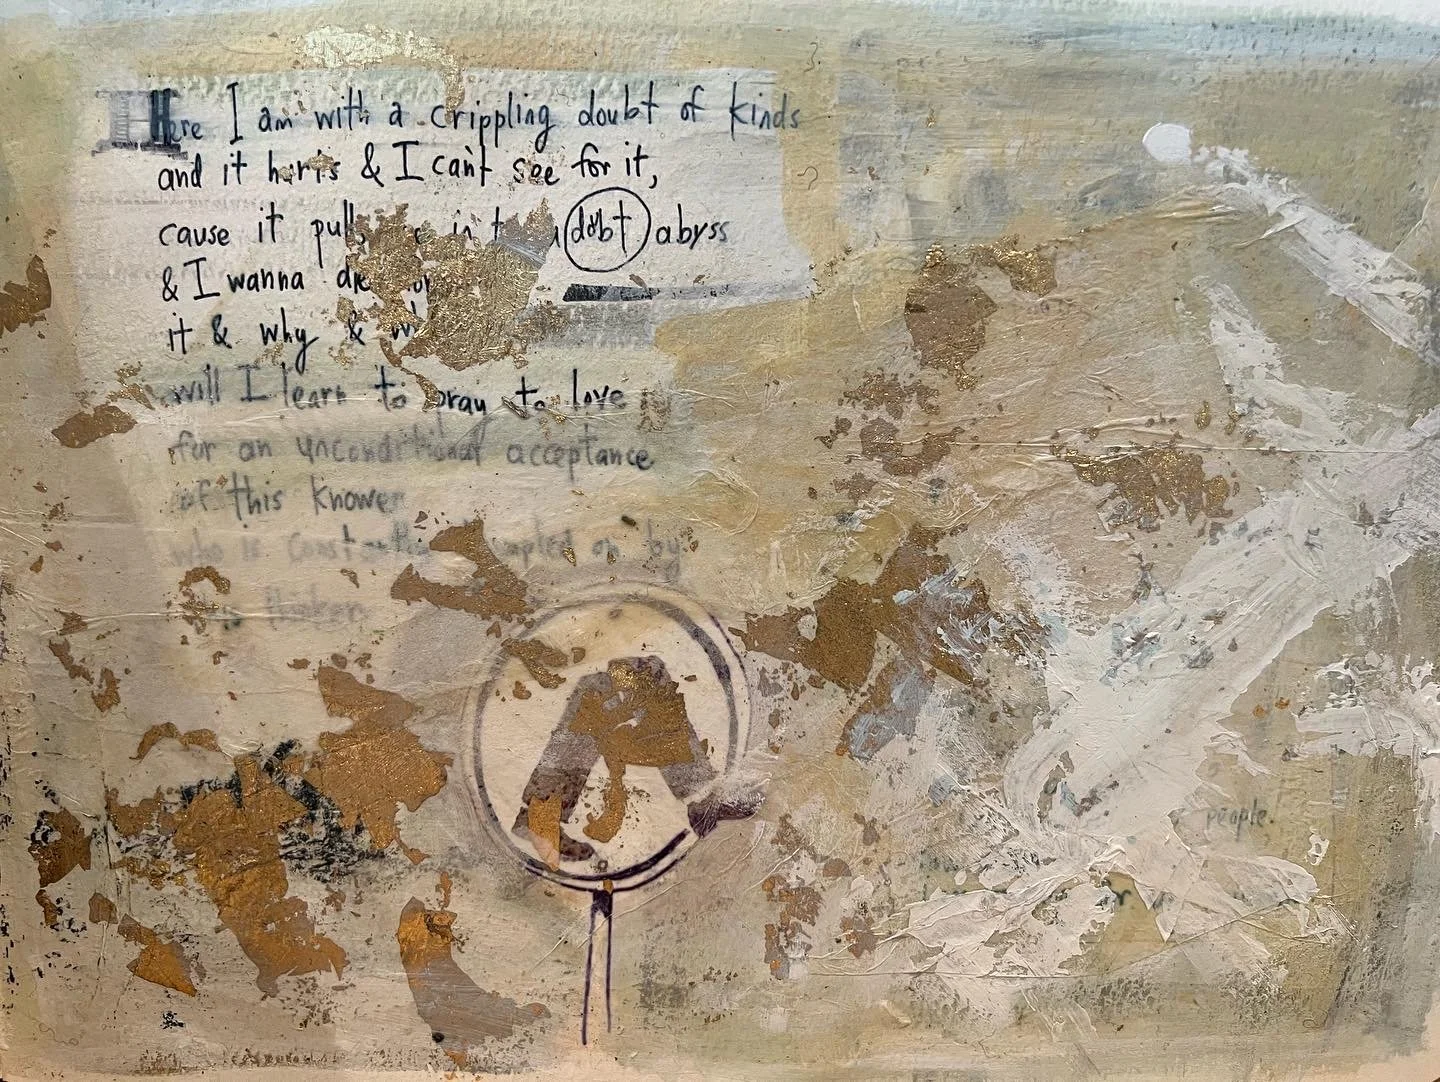 Here I am with a crippling doubt of kinds
and it hurts & I can't see for it,
cause it pulls in a doubt abyss
& I wanna die
it & why &
will I learn to pray to love
for an unconditional acceptance
of this knower
who is constantly on by
thinker
people.